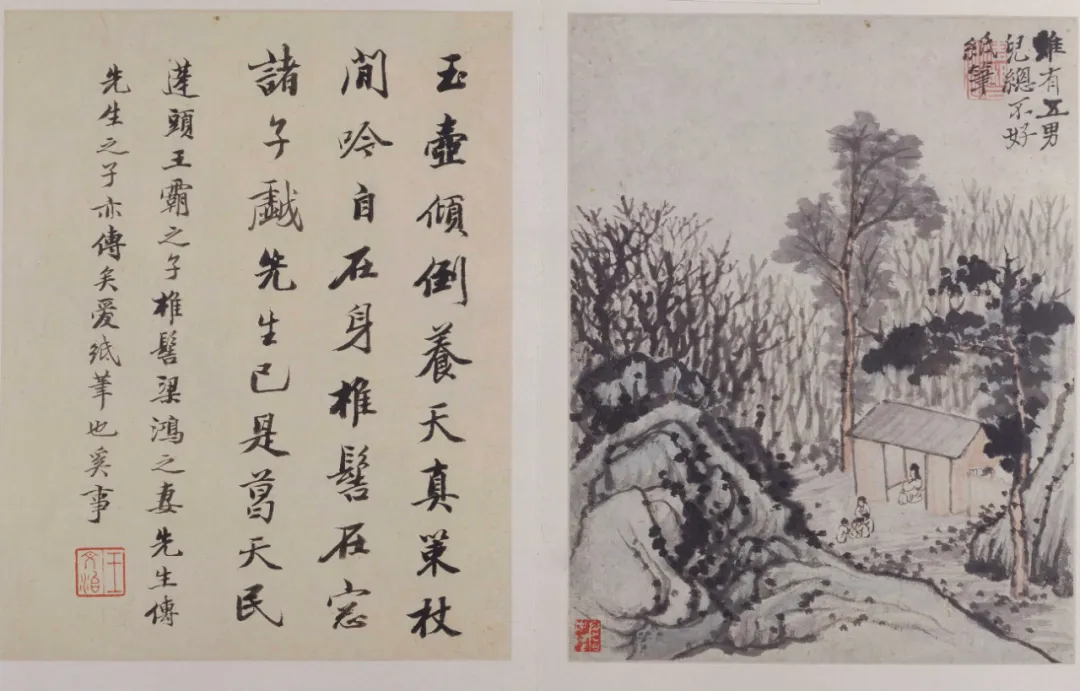 雖有五男
兒總不好
紙筆
玉壺傾倒養天真策杖
閒吟自在身椎髻在窓
諸子戱先生已是葛天民
蓬頭王霸之子椎髻梁鴻之妻先生傳
先生之子亦傳矣爱紙筆也奚事
王文治